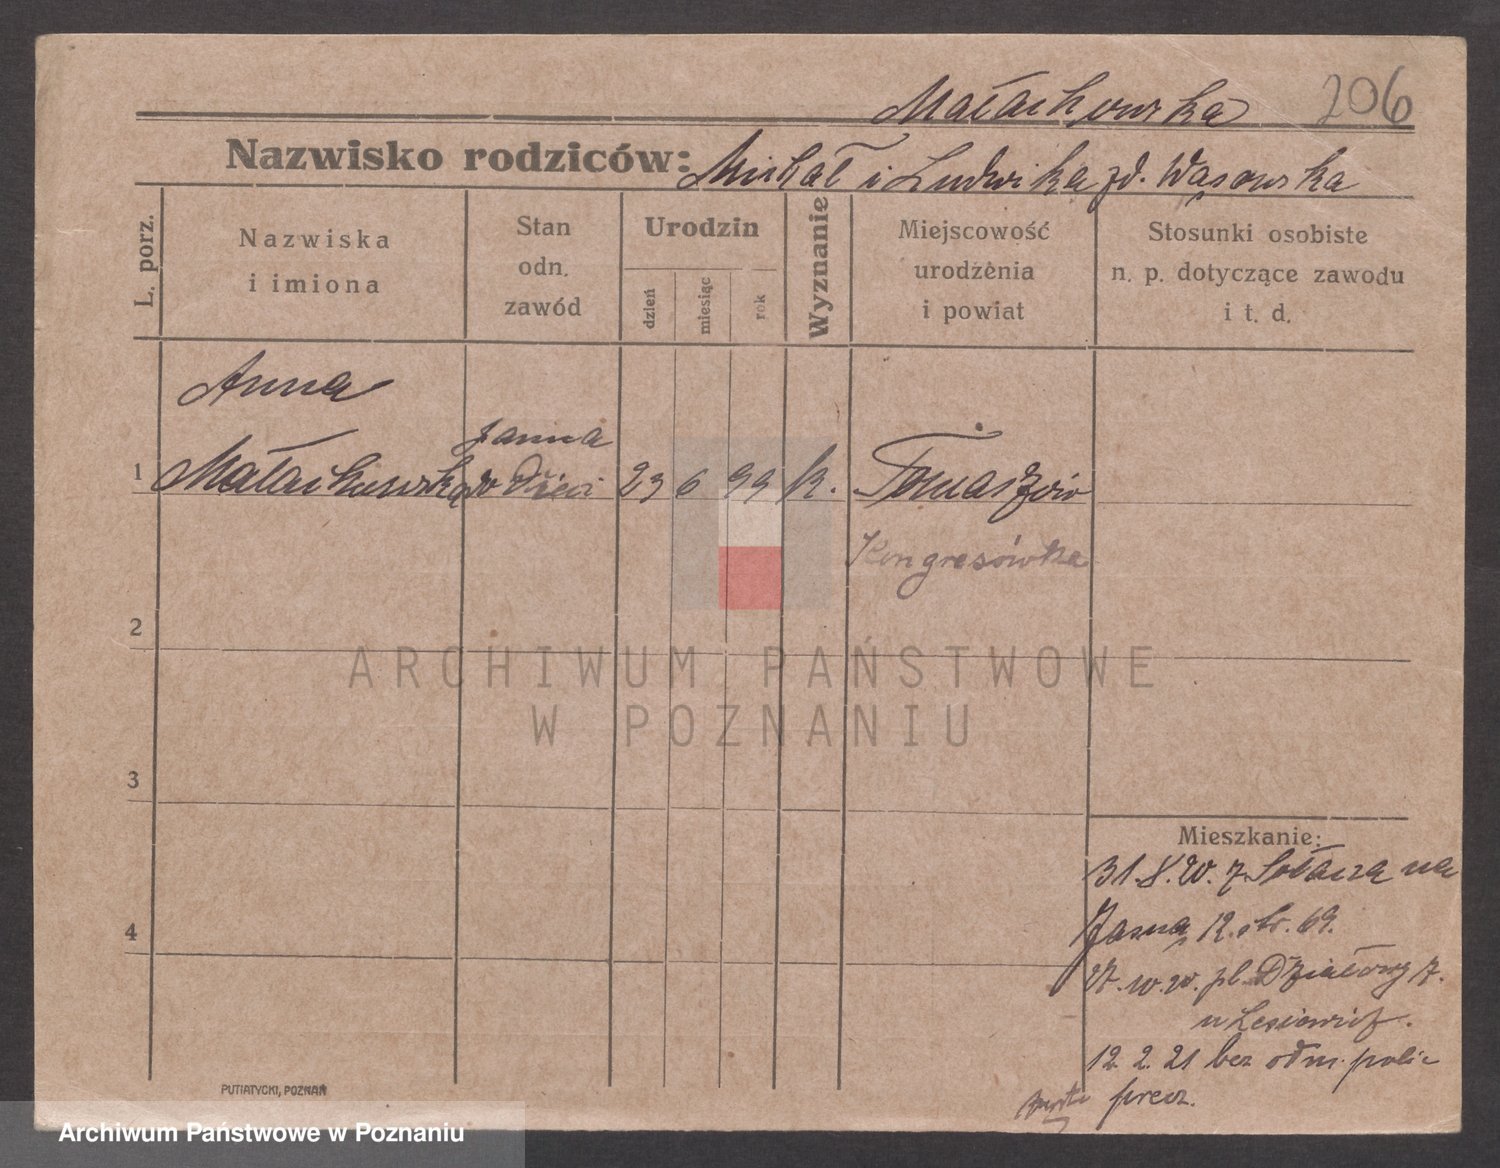 206
Małachowska
Nazwisko rodziców: Michał i Ludwika zd. Wąsowska
L. porz.
Nazwiska
i imiona
Stan
odn.
zawód
Urodzin
dzień
miesiąc
rok
Wyznanie
Miejscowość
urodzenia
i powiat
Stosunki osobiste
n. p. dotyczące zawodu
i t. d.
Anna
1 Małachowska panna do dzieci 23 6 99 k. Tomaszów
Kongresówka
2
ARCHIWUM PAŃSTWOWE
W POZNANIU
3
Mieszkanie:
31. 8. 20. z Sołacza na
Jasna 12. str. 69.
4
pl. Działowy 7.
u
12. 2. 21 bez odm. polic
precz.
PUTIATYCKI, POZNAŃ
Archiwum Państwowe w Poznaniu